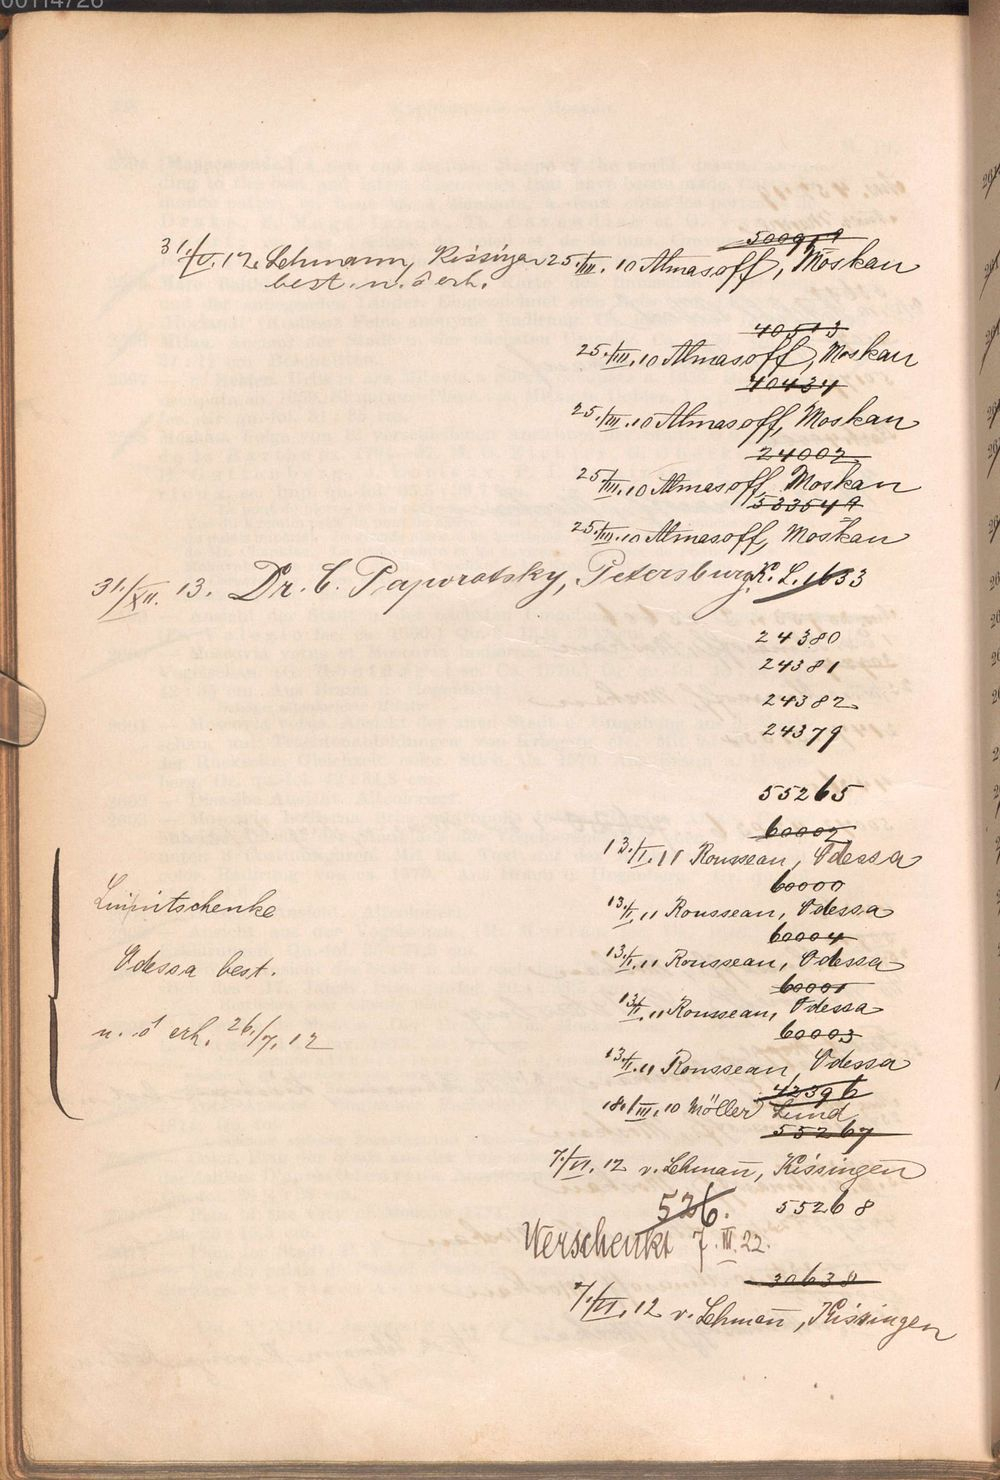 00114726
50091 9
31./V. 12. Lehmann, Kissingen 25./III. 10 Almasoff, Moskau
best. n. ő erh.
40513
25./III. 10 Almasoff, Moskau
40434
25./III. 10 Almasoff, Moskau
24002
25./III. 10 Almasoff, Moskau
533549
25./III. 10 Almasoff, Moskau
31./XII. 13. Dr. C. Paporotsky, Petersburg. K. L. 1633
24380
24381
24382
24379
55265
60002
13./I. 11 Rousseau, Odessa
60000
13./I. 11 Rousseau, Odessa
60004
13./I. 11 Rousseau, Odessa
60001
13./I. 11 Rousseau, Odessa
60003
13./I. 11 Rousseau, Odessa
Odessa best.
n. ő erh. 26./7. 12
42396
18./III. 10 Möller Lund
55267
7./VI. 12 v. Lehmañ, Kissingen
526. 55268
Verschenkt 7. III. 22.
30638
7./VI. 12 v. Lehmañ, Kissingen